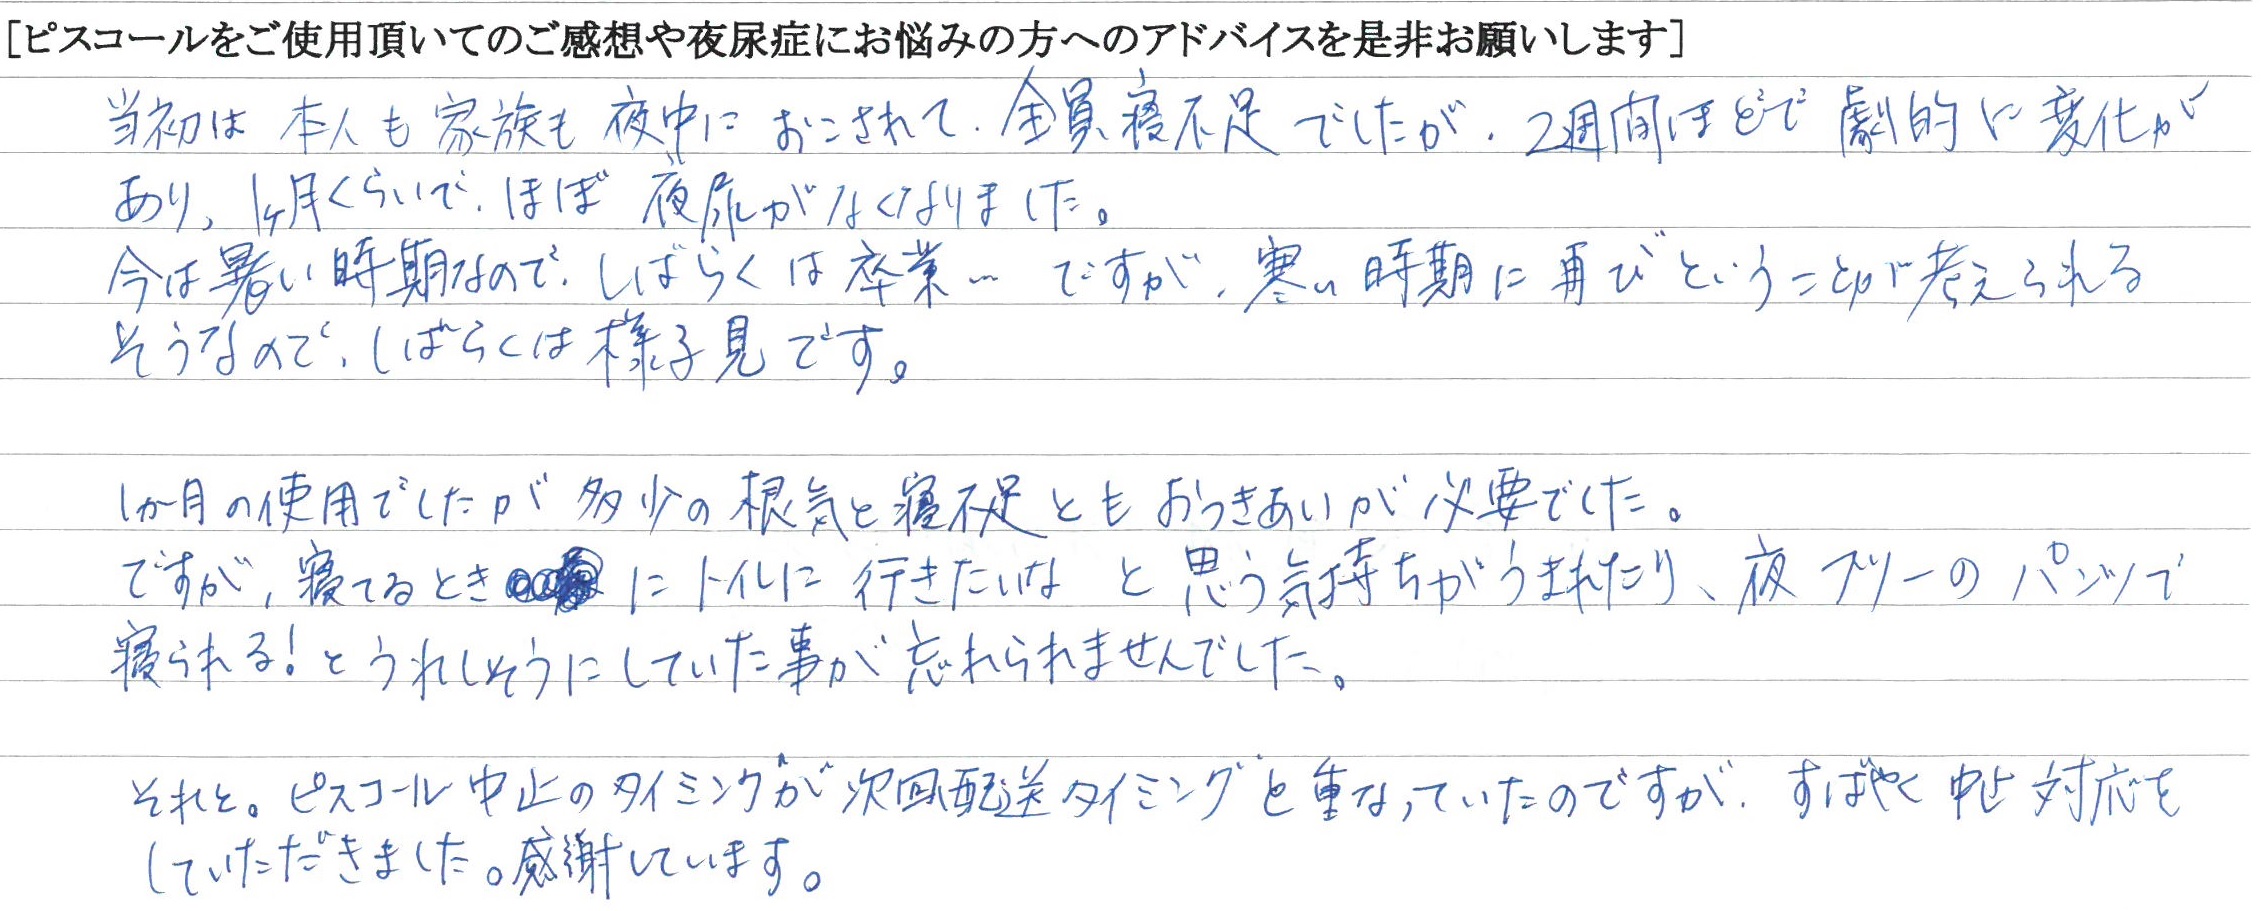 [ピスコールをご使用頂いてのご感想や夜尿症にお悩みの方へのアドバイスを是非お願いします]
当初は 本人も 家族も 夜中に おこされて、全員寝不足でしたが、2週間ほどで 劇的に 変化が
あり、1ヶ月くらいで、ほぼ 夜尿がなくなりました。
今は暑い時期なので、しばらくは 卒業… ですが、寒い時期に 再びということが考えられる
そうなので、しばらくは様子見です。
1か月の使用でしたが 多少の根気と寝不足とも おつきあいが必要でした。
ですが、寝てるとき に トイレに 行きたいな と 思う気持ちがうまれたり、夜 フリーの パンツで
寝られる!とうれしそうにしていた事が忘れられませんでした。
それと。ピスコール中止のタイミングが次回配送タイミングと重なっていたのですが、すばやく 中止 対応を
していただきました。感謝しています。